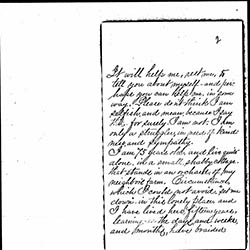 2
It will help me, rest me, to
tell you about myself - and per-
haps you can help me, in some
way. Please don't think I am
selfish, and mean, because I say
this, for surely I am not. I am
only a struggler, in need of kind
ness and sympathy.
I am 73 years old, and live quite
alone, in a small, shabby cottage
that stands in an orchard of my
neighbor's farm. Circumstances,
which I could not avoid, set me
down in this lonely place, and
I have lived here fifteen years,
learning as the days and weeks
and months, have braided